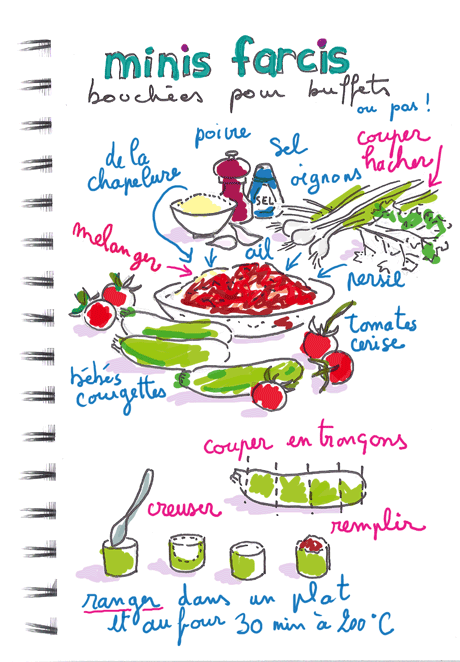 minis farcis
bouchées pour buffets
ou pas !
poivre
Sel
de la
chapelure
oignons
couper
hacher
SEL
melanger
ail
persil
tomates
cerise
bébés
courgettes
couper en tronçons
creuser
remplir
ranger dans un plat
et au four 30 min à 200°C